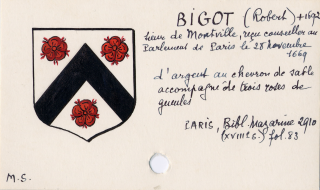 BIGOT (Robert) + 1692
sieur de Montville, reçu conseiller au
Parlement de Paris le 28 novembre
1669
d'argent au chevron de sable
accompagné de trois roses de
gueules
PARIS, Bibl. Mazarine 2910
(XVIIIe s.) fol. 83
M.S.